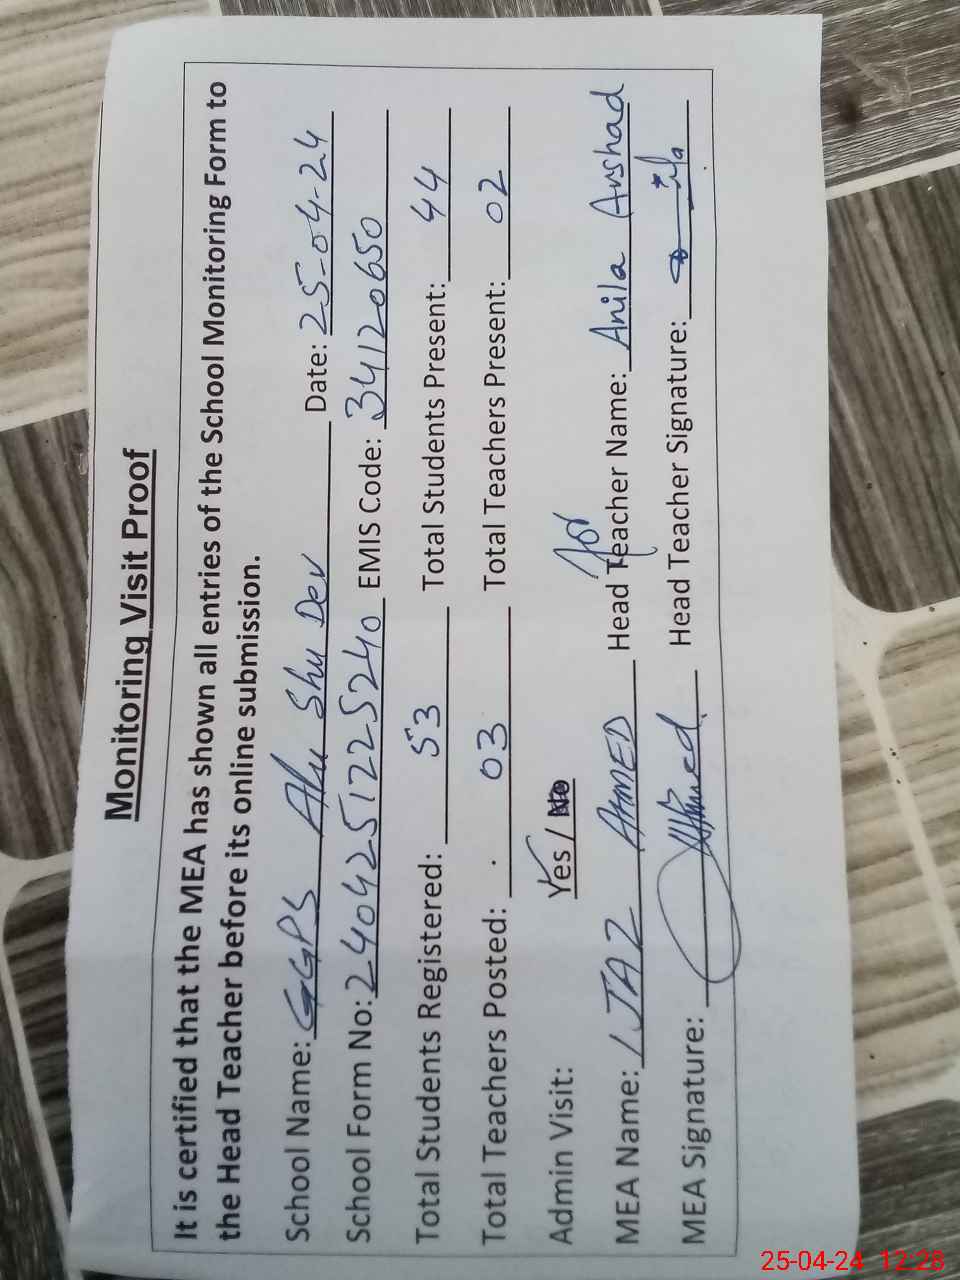 Monitoring Visit Proof
It is certified that the MEA has shown all entries of the School Monitoring Form to
the Head Teacher before its online submission.
School Name: GGPS Ahu Shu Dev Date: 25-04-24
School Form No: 2404251225240 EMIS Code: 34120650
Total Students Registered: 53 Total Students Present: 44
Total Teachers Posted: 03 Total Teachers Present: 02
Admin Visit: Yes / No
MEA Name: IJAZ AHMED Head Teacher Name: Anila Arshad
MEA Signature: Ahmed Head Teacher Signature:
25-04-24 12:28